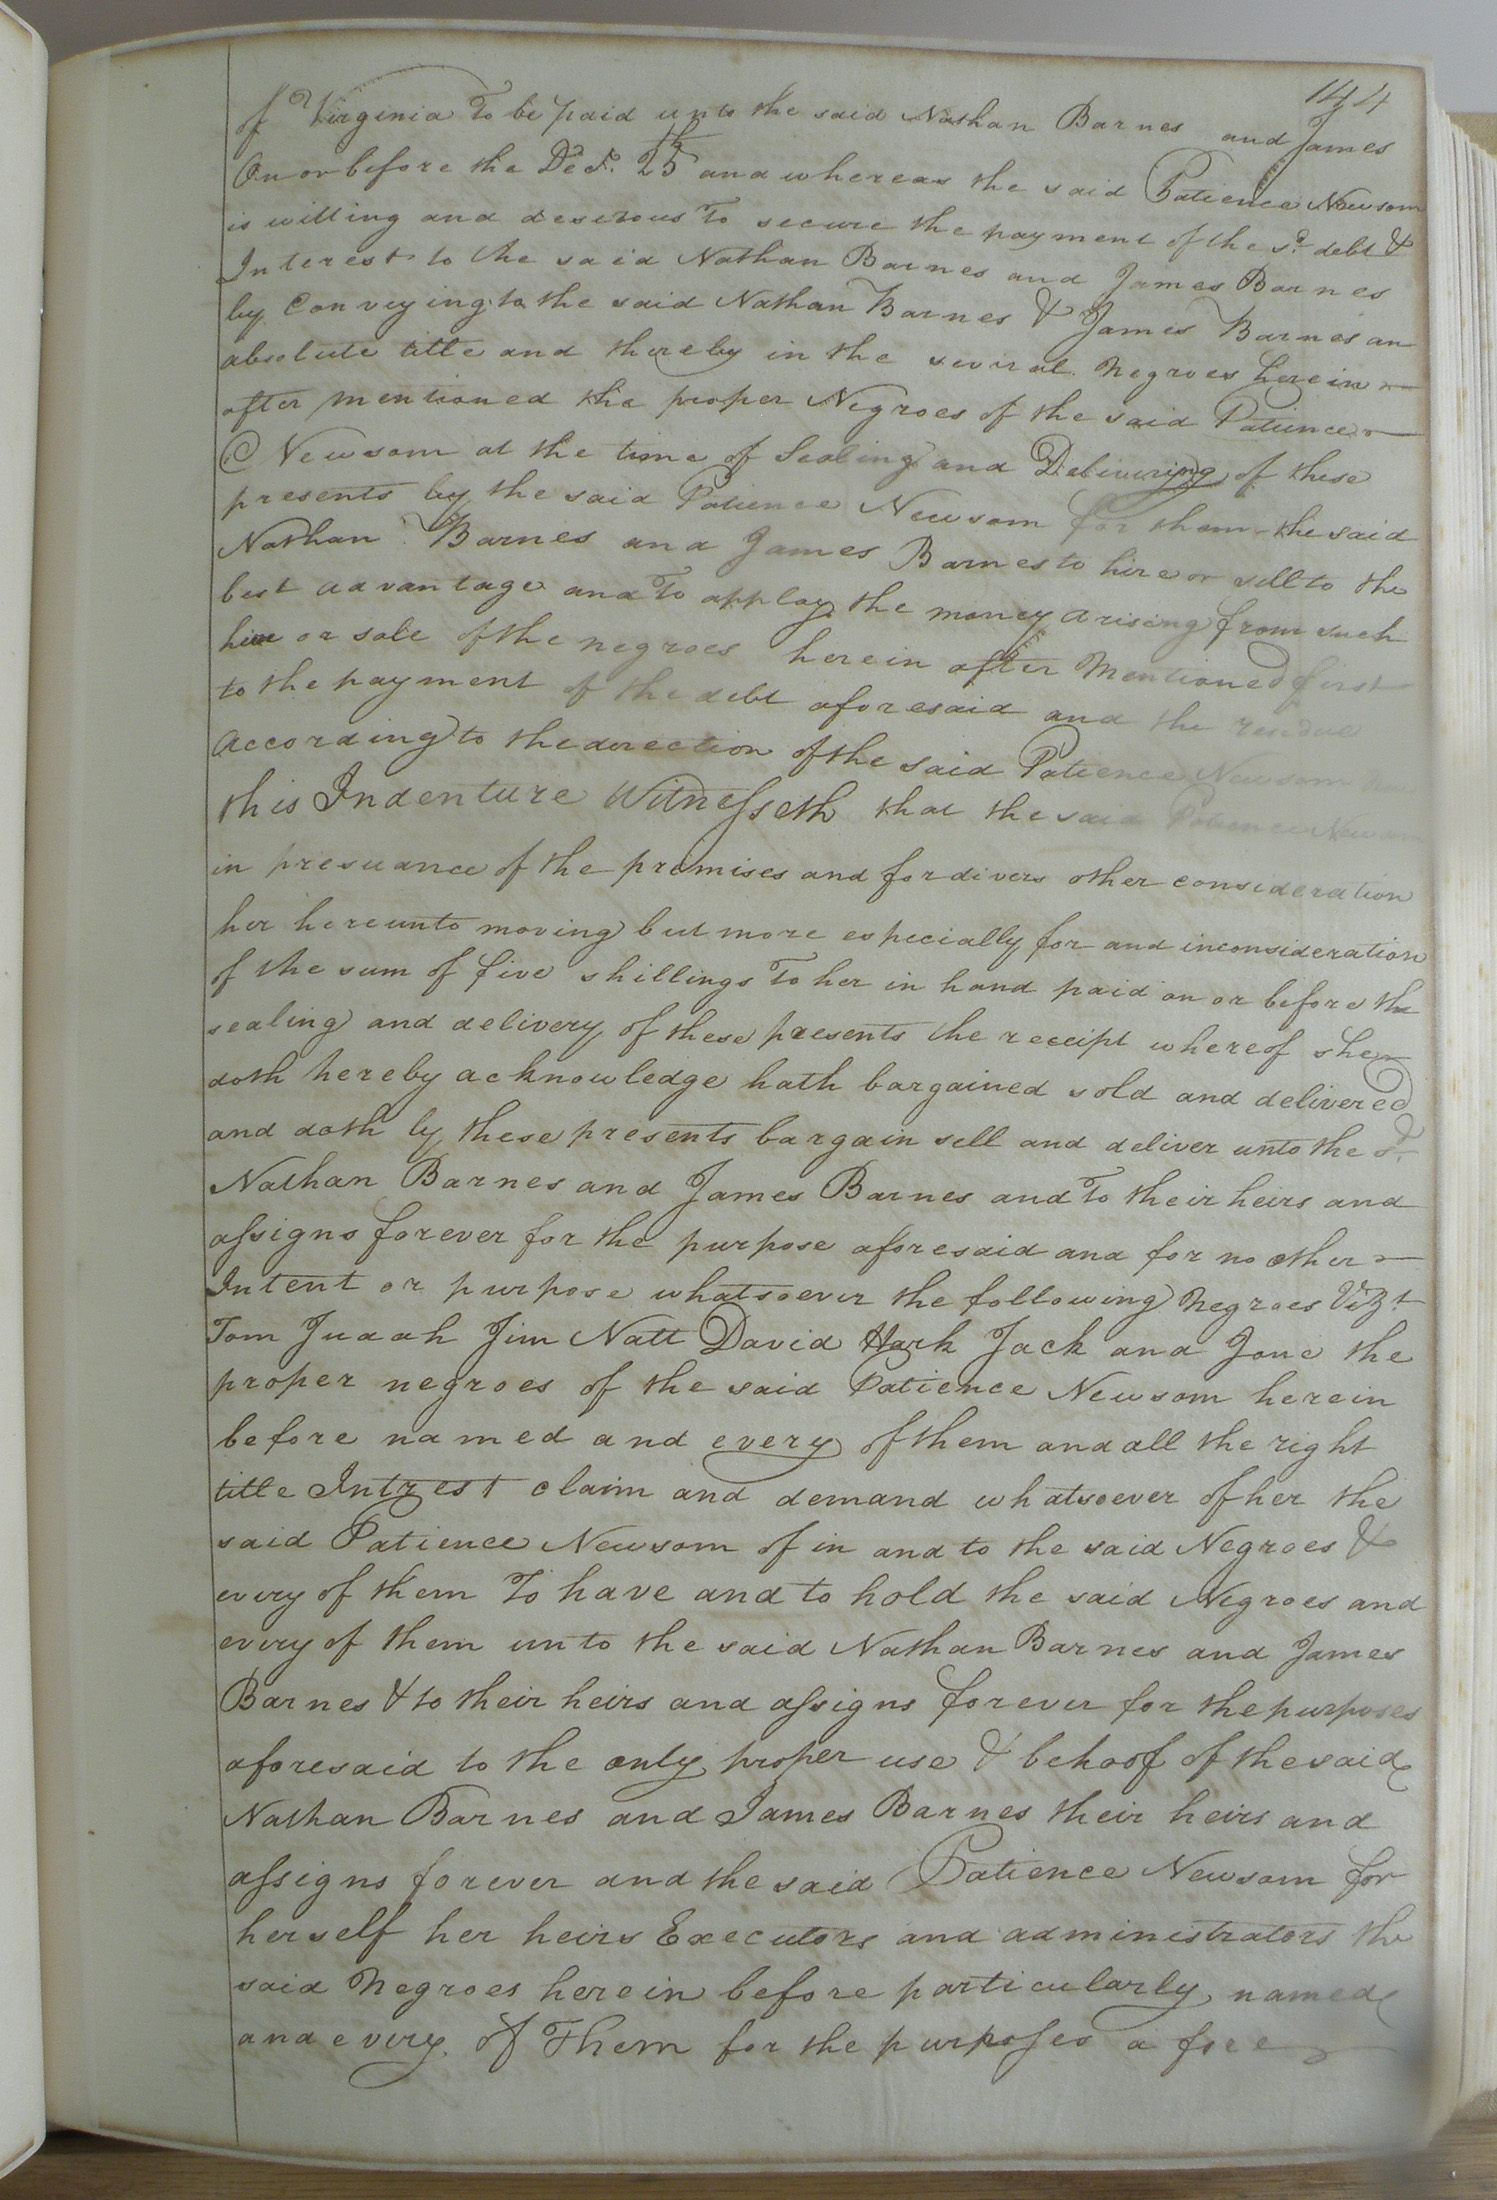 144
of Virginia To be paid unto the said Nathan Barnes and James
On or before the Dec. 25th and whereas the said Patience Newsom
is willing and desirous To secure the payment of the sd. debt &
Interest to the said Nathan Barnes and James Barnes
by Conveying to the said Nathan Barnes & James Barnes an
absolute title and thereby in the several Negroes herein
after mentioned the proper Negroes of the said Patience
Newsom at the time of Sealing and Delivering of these
presents by the said Patience Newsom for them the said
Nathan Barnes and James Barnes to hire or sell to the
best advantage and To apply the money arising from such
hire or sale of the negroes herein after Mentioned first
to the payment of the debt aforesaid and the residue
According to the direction of the said Patience Newsom
this Indenture Witnesseth that the said Patience Newsom
in presuance of the premises and for divers other consideration
her hereunto moving but more especially for and inconsideration
of the sum of five shillings To her in hand paid on or before the
sealing and delivery of these presents the receipt whereof she
doth hereby acknowledge hath bargained sold and delivered
and doth by these presents bargain sell and deliver unto the sd.
Nathan Barnes and James Barnes and To their heirs and
assigns forever for the purpose aforesaid and for no other
Intent or purpose whatsoever the following Negroes Vizt
Tom Judah Jim Natt David Hark Jack and Jone the
proper negroes of the said Patience Newsom herein
before named and every of them and all the right
title Intrest claim and demand whatsoever of her the
said Patience Newsom of in and to the said Negroes &
every of them To have and to hold the said Negroes and
every of them unto the said Nathan Barnes and James
Barnes & to their heirs and assigns forever for the purposes
aforesaid to the only proper use & behoof of the said
Nathan Barnes and James Barnes their heirs and
assigns forever and the said Patience Newsom for
herself her heirs Executors and administrators the
said Negroes herein before particularly named
and every of Them for the purposes afore